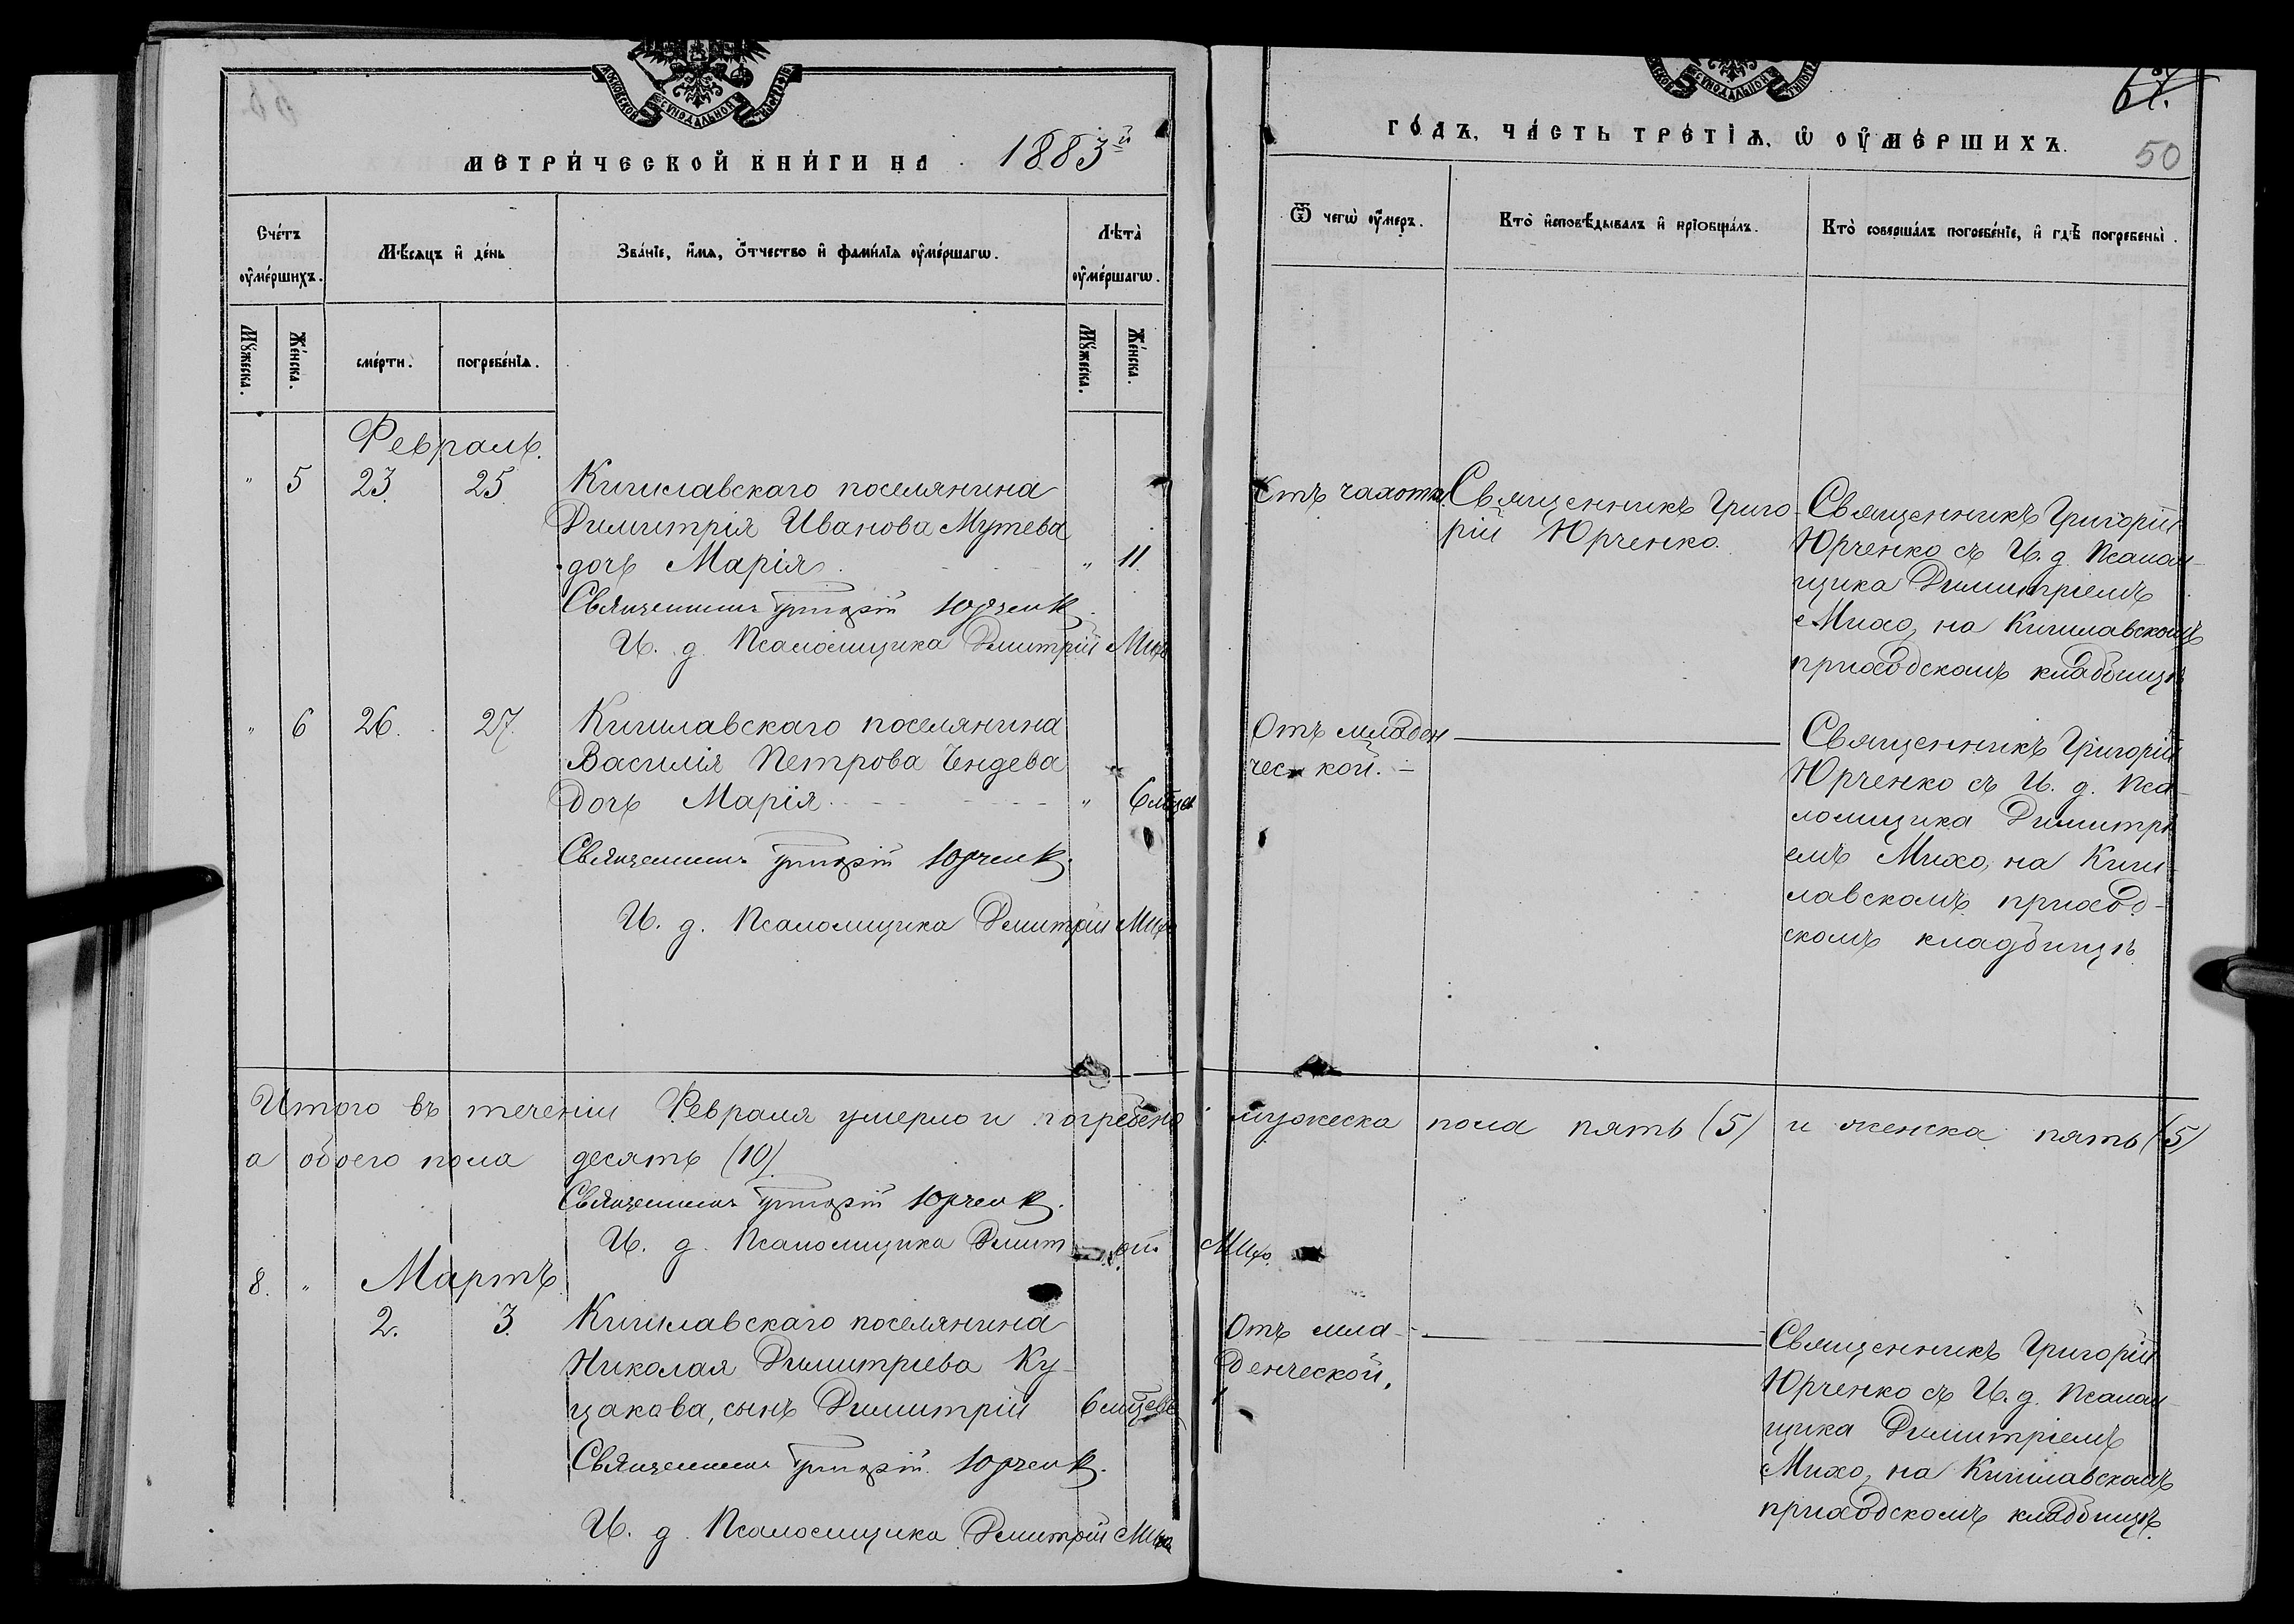 МЕТРИ́ЧЕСКОЙ КНИ́ГИ НА 1883й
ГО́ДЪ, ЧА́СТЬ ТРЕ́ТІѦ, Ѡ ОУ҆МЕ́РШИХЪ.
50
Сче́тъ
оу҆ме́ршихъ.
Мѣ́сяцъ и҆ де́нь
Зва́нїе, и҆́мѧ, ѻ҆́тчество и҆ фами́лїѧ оу҆ме́ршагѡ.
Лѣ́та
оу҆ме́ршагѡ.
Ѿ чегѡ̀ оу҆́меръ.
Кто̀ и҆сповѣ́дывалъ и҆ прїобща́лъ.
Кто̀ соверша́лъ погребе́нїе, и҆ гдѣ̀ погребены̀.
Му́жеска.
Же́нска.
сме́рти.
погребе́нїѧ.
Му́жеска.
Же́нска.
Февраль.
" 5 23. 25 Кишлавскаго поселянина
Димитрія Иванова Мутева
дочь Марія. " 11.
Священникъ Григорій Юрченко
И. д. Псаломщика Дмитрій Михо
Отъ чахотки
Священникъ Григо-
рій Юрченко.
Священникъ Григорій
Юрченко съ И. д. Псалом-
щика Димитріемъ
Михо, на Кишлавскомъ
приходскомъ кладбищѣ
" 6 26. 27. Кишлавскаго поселянина
Василія Петрова Чендева
дочь Марія. " 6 мѣцев
Священникъ Григорій Юрченко.
И. д. Псаломщика Дмитрій Михо
Отъ младен
ческой.
Священникъ Григорій
Юрченко съ И. д. Пса-
ломщика Димитрі
емъ Михо, на Киш-
лавскомъ приход-
скомъ кладбищѣ.
Итого въ теченіи Февраля умерло и погребено мужеска пола пять (5) и женска пять (5)
а обоего пола десять (10)
Священникъ Григорій Юрченко.
И. д. Псаломщика Дмитрій Михо.
8. " Мартъ
2. 3. Кишлавскаго поселянина
Николая Димитріева Ку-
цакова, сынъ Димитрій 6 мѣцевъ
Священникъ Григорій Юрченко.
И. д. Псаломщика Дмитрій Михо
Отъ мла-
денческой.
Священникъ Григорій
Юрченко съ И. д. Псалом-
щика Димитріемъ
Михо, на Кишлавскомъ
приходскомъ кладбищѣ.